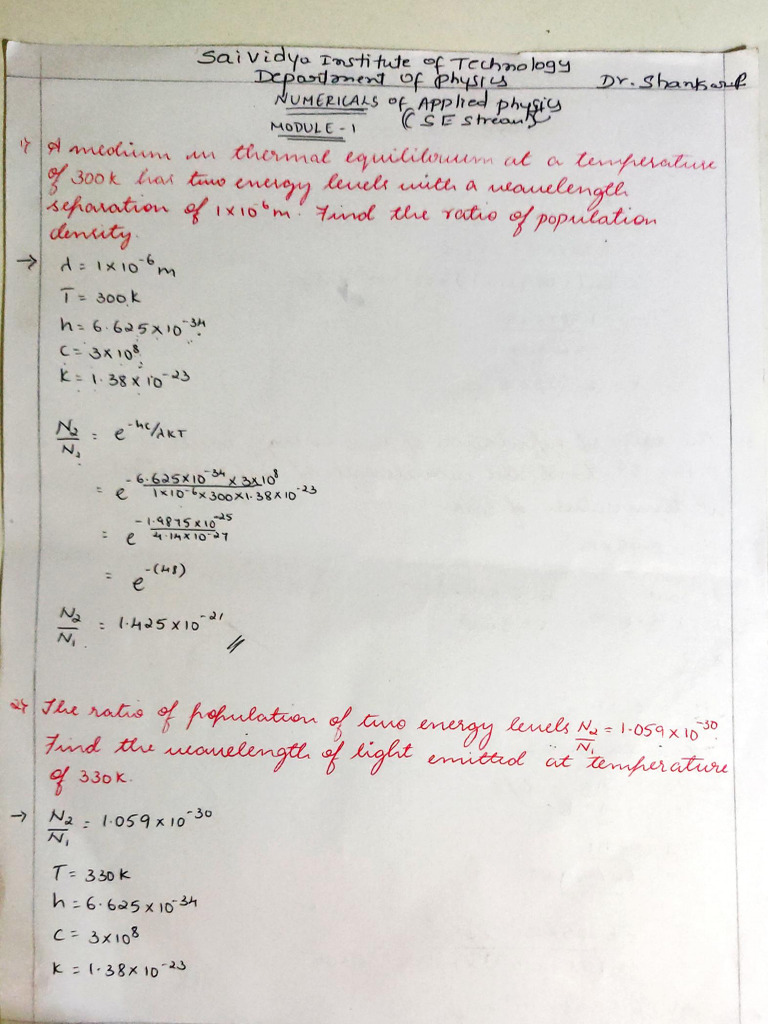 Sai Vidya Institute of Technology
Department of physics Dr. Shankar
NUMERICALS of Applied physics
MODULE - 1 (CSE Stream)
1) A medium in thermal equilibrium at a temperature
of 300K has two energy levels with a wavelength
separation of 1×10⁻⁶m. Find the ratio of population
density.
→ λ = 1×10⁻⁶ m
T = 300 K
h = 6.625×10⁻³⁴
C = 3×10⁸
K = 1.38×10⁻²³
N₂/N₁ = e^-hc/λKT
= e^-6.625×10⁻³⁴×3×10⁸/1×10⁻⁶×300×1.38×10⁻²³
= e^-1.9875×10⁻²⁵/4.14×10⁻²⁷
= e^-(48)
N₂/N₁ = 1.425×10⁻²¹ //
2) The ratio of population of two energy levels N₂/N₁ = 1.059×10⁻³⁰
Find the wavelength of light emitted at temperature
of 330K.
→ N₂/N₁ = 1.059×10⁻³⁰
T = 330 K
h = 6.625×10⁻³⁴
C = 3×10⁸
K = 1.38×10⁻²³